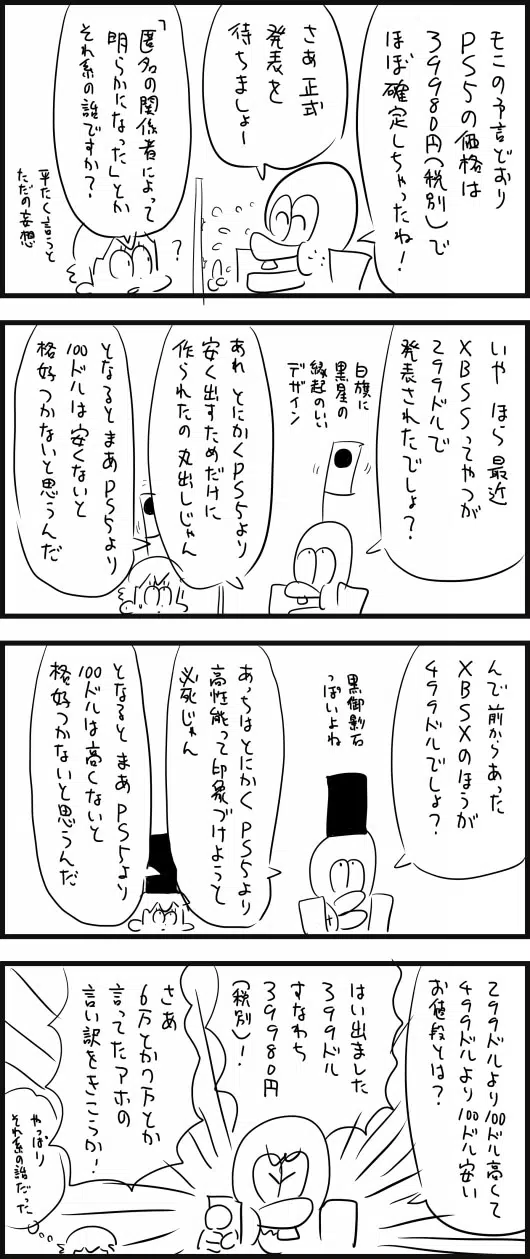 モコの予言どおり
PS5の価格は
39980円(税別)で
ほぼ確定しちゃったね!
さあ正式
発表を
待ちましょー
「匿名の関係者によって
明らかになった」とか
それ系の話ですか?
平たく言うと
ただの妄想
?
いや ほら 最近
XBSSってやつが
299ドルで
発表されたでしょ?
白旗に
黒星の
縁起のいい
デザイン
あれ とにかくPS5より
安く出すためだけに
作られたの丸出しじゃん
となるとまあPS5より
100ドルは安くないと
格好つかないと思うんだ
んで前からあった
XBSXのほうが
499ドルでしょ?
黒御影石
っぽいよね
あっちはとにかくPS5より
高性能って印象づけようと
必死じゃん
となると まあ PS5より
100ドルは高くないと
格好つかないと思うんだ
299ドルより100ドル高くて
499ドルより100ドル安い
お値段とは?
はい出ました
399ドル
すなわち
39980円
(税別)!
さあ
6万とか7万とか
言ってたアホの
言い訳をきこうか!
やっぱり
それ系の話だった